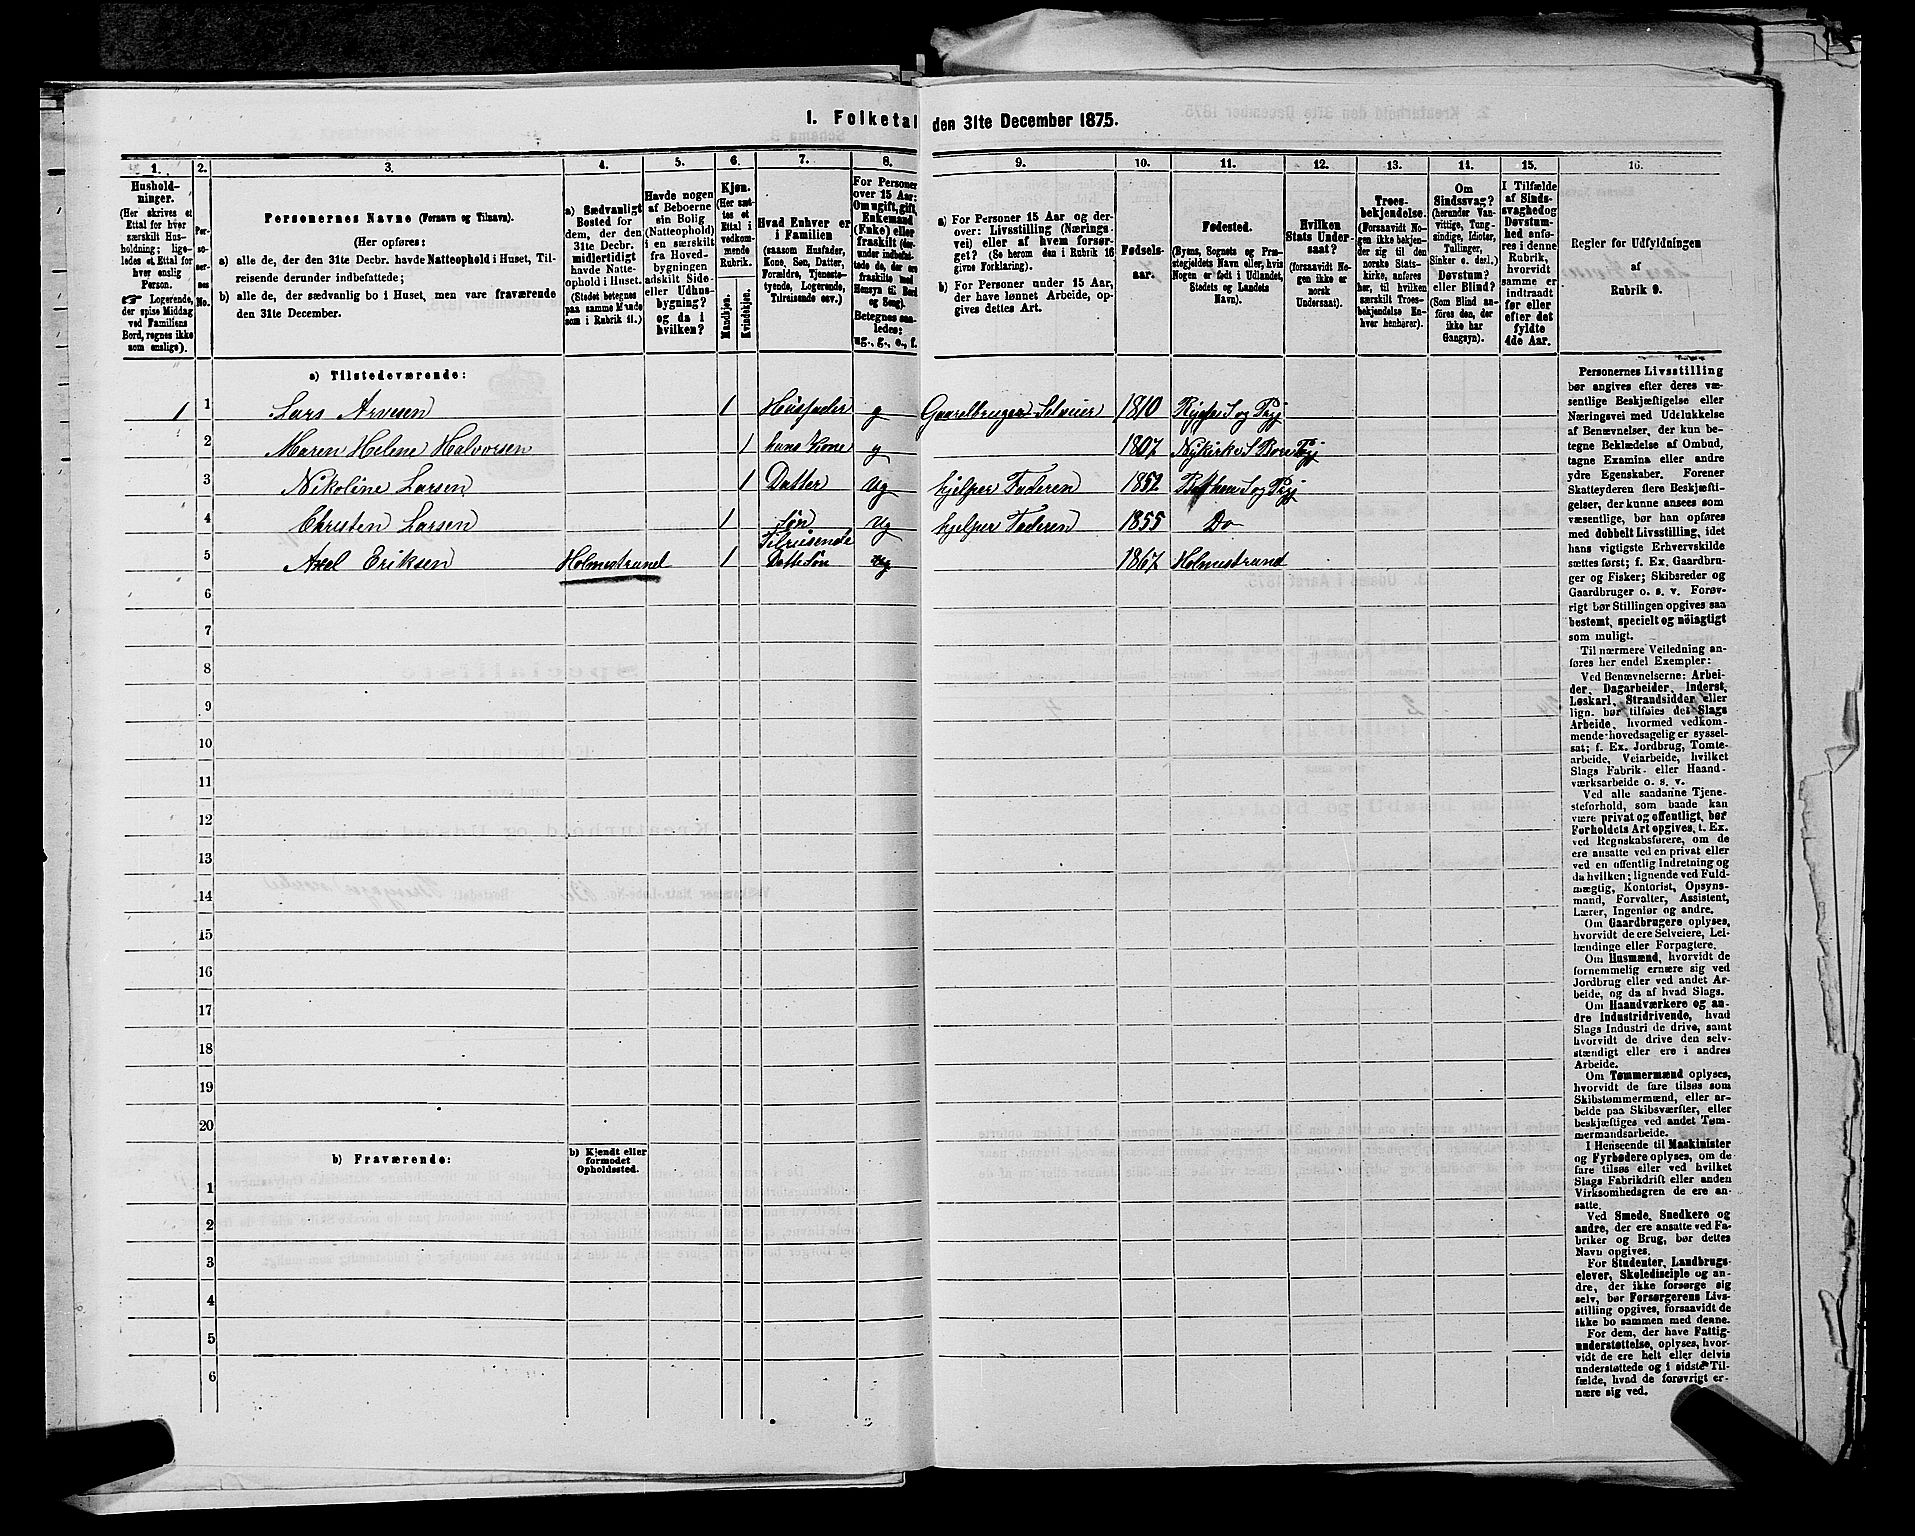 I. Folketal den 31te December 1875.
1. 2. 3. 4. 5. 6. 7. 8. 9. 10. 11. 12. 13. 14. 15. 16.
Hushold-
ninger.
(Her skrives et
Ettal for hver
særskilt Hus-
holdning; lige-
ledes et Ettal for
hver enslig
Person.
☞ Logerende,
der spise Middag
ved Familiens
Bord, regnes ikke
som enslige).
Per-
so-
ner-
nes
No.
Personernes Navne (Fornavn og Tilnavn).
(Her opføres:
a) alle de, der den 31te Decbr. havde Natteophold i Huset, Til-
reisende derunder indbefattede;
b) alle de, der sædvanlig bo i Huset, men vare fraværende
den 31te December.
a) Sædvanligt
Bosted for
dem, der den
31te Decbr.
midlertidigt
havde Natte-
ophold i Huset.
(Stedet betegnes
paa samme Maade
som i Rubrik 11.)
Havde nogen
af Beboerne
sin Bolig
(Natteophold)
i en særskilt
fra Hoved-
bygningen
adskilt Side-
eller Udhus-
bygning?
og da i
hvilken?
Kjøn.
(Her sæt-
tes et
Ettal i
vedkom-
mende
Rubrik.
Mandkjøn.
Kvindekjøn.
Hvad Enhver er
i Familien
(saasom Husfader,
Kone, Søn, Datter,
Forældre, Tjeneste-
tyende, Logerende,
Tilreisende osv.)
For Personer
over 15 Aar:
Om ugift, gift,
Enkemand
(Enke) eller
fraskilt (der-
under indbefat-
tede de, der ere
fraskilte med
Hensyn til Bord
og Seng).
Betegnes saa-
ledes:
ug., g., e., f.
a) For Personer 15 Aar og der-
over: Livsstilling (Nærings-
vei) eller af hvem forsør-
get? (Se herom den i Rubrik 16
givne Forklaring).
b) For Personer under 15 Aar,
der have lønnet Arbeide, op-
gives dettes Art.
Fødsels-
aar.
Fødested.
(Byens, Sognets og Præ-
stegjeldets Navn eller, hvis
Nogen er født i Udlandet,
Stedets og Landets
Navn).
Hvilken
Stats Under-
saat?
(forsaavidt No-
gen ikke er
norsk
Undersaat).
Troes-
bekjendelse.
(Forsaavidt No-
gen ikke bekjen-
der sig til den
norske Stats-
kirke, anføres
her, til hvilken
særskilt Troes-
bekjendelse En-
hver henhører).
Om
Sindssvag?
(herunder Van-
vittige, Tung-
sindige, Idioter,
Tullinger,
Sinker o. desl.)
Døvstum?
eller Blind?
(Som Blind an-
føres den, der
ikke har
Gangsyn).
I Tilfælde
af Sinds-
svaghed og
Døvstum-
hed anfø-
res i denne
Rubrik,
hvorvidt
samme er
indtraadt
før eller
efter det
fyldte
4de Aar.
Regler for Udfyldningen
af
Rubrik 9.
a) Tilstedeværende:
1 1 Lars Arvesen 1 Husfader g Gaardbruger Selveier 1810 Rygge S og Pgj
2 Maren Helene Halvorsen 1 hans Kone g 1807 Nykirke S Borre Pgj
3 Nikoline Larsen 1 Datter ug hjelper Faderen 1852 S og Pgj
4 Christen Larsen 1 Søn ug hjelper Faderen 1855 Do
5 Axel Eriksen Holmestrand 1 Tilreisende
Dattersøn ug 1867 Holmestrand
6
7
8
9
10
11
12
13
14
15
16
17
18
19
20
b) Fraværende:
b) Kjendt eller
formodet
Opholdssted.
1
2
3
4
5
6
Personernes Livsstilling
bør angives efter deres væ-
sentlige Beskjæftigelse eller
Næringsvei med Udelukkelse
af Benævnelser, der kun be-
tegne Beklædelse af Ombud,
tagne Examina eller andre
ydre Egenskaber. Forener
Skatteyderen flere Beskjæfti-
gelser, der kunne ansees som
væsentlige, bør han opføres
med dobbelt Livsstilling, idet
hans vigtigste Erhvervskilde
sættes først; f. Ex. Gaardbru-
ger og Fisker; Skibsreder og
Gaardbruger o. s. v. Forøv-
rigt bør Stillingen opgives saa
bestemt, specielt og nöiagtigt
som muligt.
Til nærmere Veiledning an-
føres her endel Exempler:
Ved Benævnelserne: Arbei-
der, Dagarbeider, Inderst,
Løskarl, Strandsidder eller
lign. bør tilføies det Slags
Arbeide, hvormed vedkom-
mende hovedsagelig er syssel-
sat; f. Ex. Jordbrug, Tomte-
arbeide, Veiarbeide, hvilket
Slags Fabrik- eller Haand-
værksarbeide o. s. v.
Ved alle saadanne Tjene-
steforhold, som baade kan
være privat og offentligt, bør
Forholdets Art opgives, t. Ex.
ved Regnskabsførere, om de
ere ansatte ved en privat eller
ved en offentlig Indretning og
da hvilken; lignende ved Fuld-
mægtig, Kontorist, Opsyns-
mand, Forvalter, Assistent,
Lærer, Ingeniør og andre.
Om Gaardbrugere oplyses,
hvorvidt de ere Selveiere, Lei-
lændinge eller Forpagtere.
Om Husmænd, hvorvidt de
fornemmelig ernære sig ved
Jordbrug eller ved andet Ar-
beide, og da af hvad Slags.
Om Haandværkere og an-
dre Industridrivende, hvad
Slags Industri de drive, samt
hvorvidt de drive den selv-
stændigt eller ere i andres
Arbeide.
Om Tømmermænd oplyses,
hvorvidt de fare tilsøs som
Skibstømmermænd, eller ar-
beide paa Skibsværfter, eller
beskjæftiges ved andet Tøm-
mermandsarbeide.
I Henseende til Maskinister
og Fyrbødere oplyses, om de
fare tilsøs eller ved hvilket
Slags Fabrikdrift eller anden
Virksomhedsgren de ere an-
satte.
Ved Smede, Snedkere og
andre, der ere ansatte ved Fa-
briker og Brug, bør dettes
Navn opgives.
For Studenter, Landbrugs-
elever, Skoledisciple og an-
dre, der ikke forsørge sig
selv, bør Forsørgerens Livs-
stilling opgives, forsaavidt de
ikke bo sammen med denne.
For dem, der have Fattig-
understøttelse, oplyses, hvor-
vidt de ere helt eller delvis
understøttede og i sidste Til-
fælde, hvad de forøvrigt er-
nære sig ved.